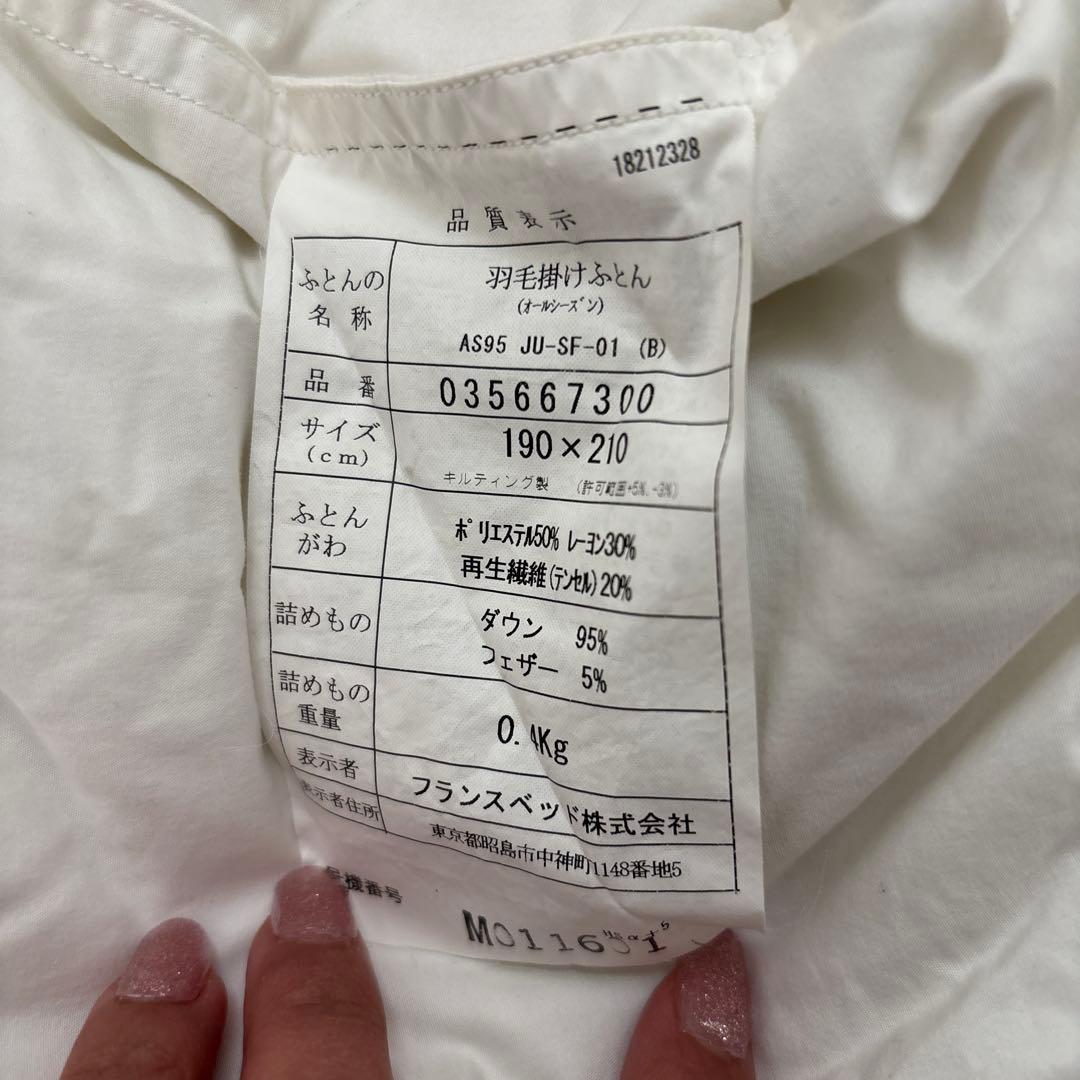 18212328
品質表示
ふとんの名称
羽毛掛けふとん
(オールシーズン)
AS95 JU-SF-01 (B)
品番
035667300
サイズ
(cm)
190×210
キルティング製 (許可範囲+5%.-3%)
ふとん
がわ
ポリエステル50% レーヨン30%
再生繊維(テンセル)20%
詰めもの
ダウン 95%
フェザー 5%
詰めもの
重量
0.4Kg
表示者
フランスベッド株式会社
表示者住所
東京都昭島市中神町1148番地5
機番号